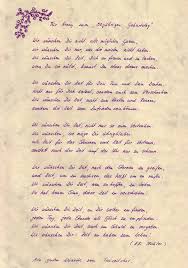 zum Geburtstag!
Wir wünschen Dir nicht alle möglichen Gaben,
Wir wünschen Dir nur, was die meisten nicht haben.
Wir wünschen Dir Zeit, Dich zu freuen und zu lachen,
wenn Du sie nützt, kannst du etwas draus machen.
Wir wünschen Dir Zeit für Dein Tun und Dein Denken,
nicht nur für Dich selbst, sondern auch zum Verschenken.
Wir wünschen Dir Zeit, nicht zum Hasten und Rennen,
sondern die Zeit zum Zufriedenseinkönnen.
Wir wünschen Dir Zeit, nicht nur so zum Vertreiben.
Wir wünschen, sie möge Dir übrigbleiben
als Zeit für das Staunen und Zeit für Vertraun,
anstatt nach der Zeit auf der Uhr nur zu schaun.
Wir wünschen Dir Zeit, nach den Sternen zu greifen,
und Zeit, um zu wachsen, das heißt, um zu reifen.
Wir wünschen Dir Zeit, neu zu hoffen, zu lieben.
Es hat keinen Sinn, diese Zeit zu verschieben.
Wir wünschen Dir Zeit, zu Dir selber zu finden,
jeden Tag, jede Stunde als Glück zu empfinden.
Wir wünschen Dir Zeit, auch um Schuld zu vergeben.
Wir wünschen Dir: Zeit zu haben zum Leben!
guten Wünsche